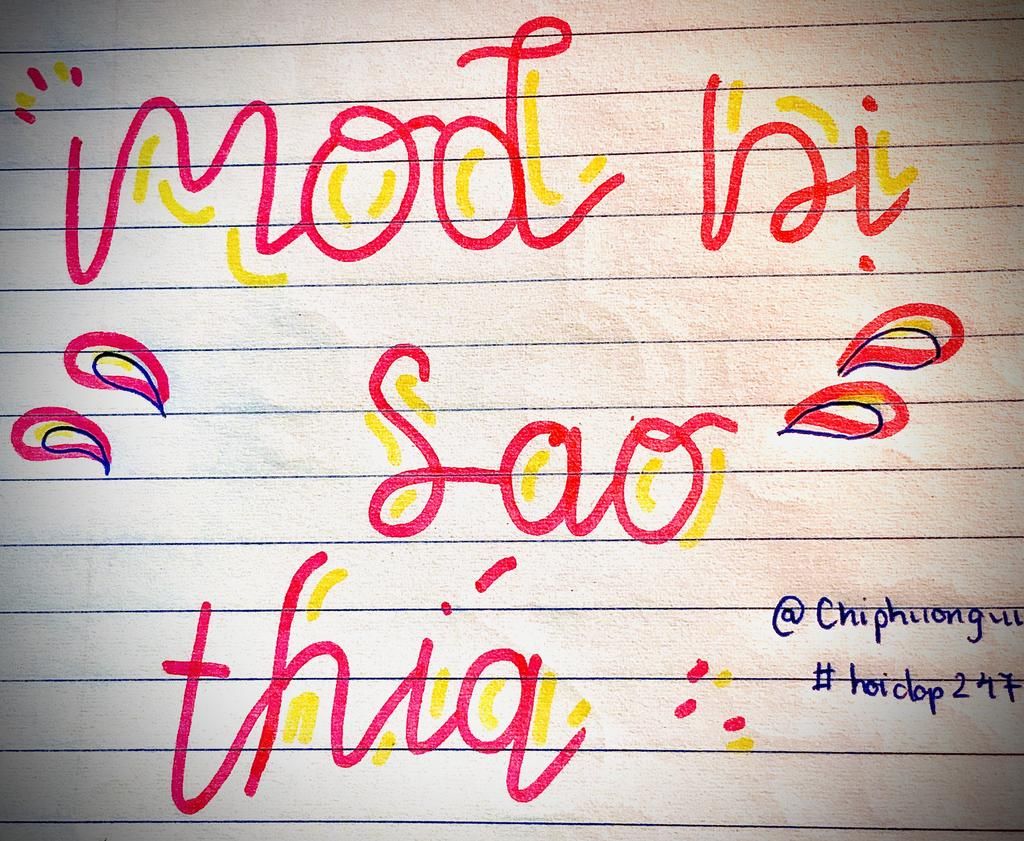 Mod bị
Sao
thía
@Chiphuonguu
#hoidap247